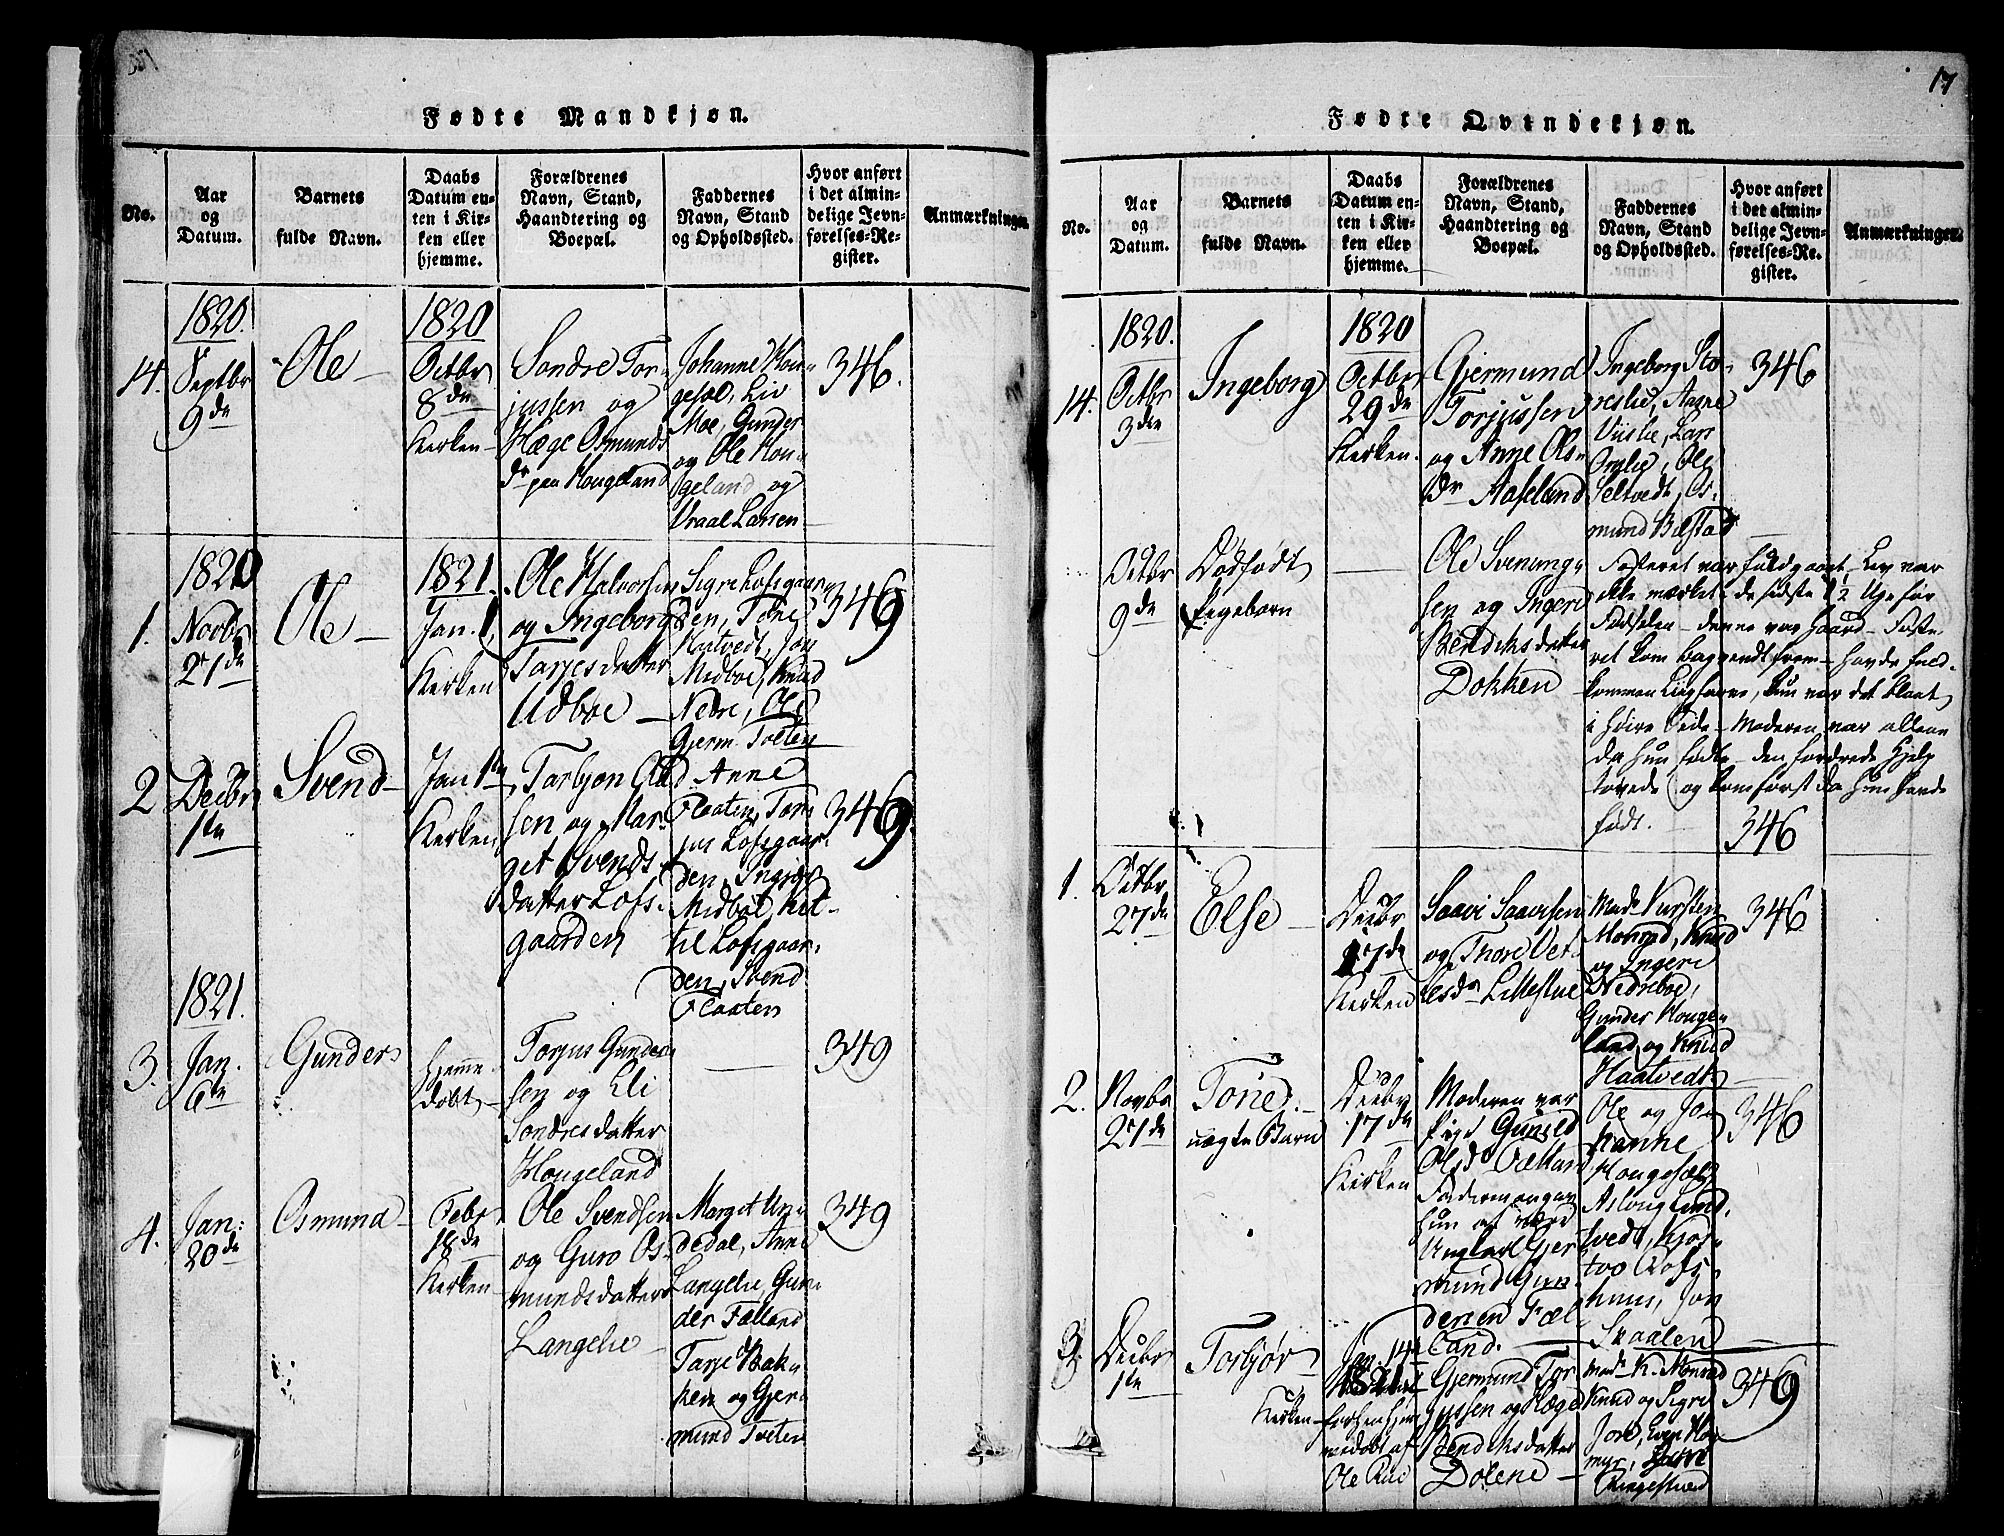 Fødte Mandkjøn.
No.
Aar
og
Datum.
Barnets
fulde Navn.
Daabs
Datum en-
ten i Kir-
ken eller
hjemme.
Forældrenes
Navn, Stand,
Haandtering og
Boepæl.
Faddernes
Navn, Stand
og Opholdssted.
Hvor anført
i det almin-
delige Jevn-
førelses-Re-
gister.
Anmærkninger.
14.
1820.
Septbr
9de
Ole
1820
Octbr
8de
Kirken
Sondre Tor-
jussen og
Hæge Osmunds
dr paa Hougeland
Johanne Hou-
gesæl, Liv
Moe, Gunder
og Ole Hou-
geland og
Vraal Larsen
346.
1.
1820
Novbr
27de
Ole
1821.
Jan. 1,
Kirken
Ole Halvorsen
og Ingeborg
Tarjesdatter
Udboe
Sigri Lofsgaar-
den, Tone
Haatvedt, Jon
Midboe, Knud
Nedre, Ole
Gjerm. Tveten
349
2
Decbr
1te
Svend
Jan 1te
Kirken
Torbjon Ol-
sen og Mar-
get Svends-
datter Lofs-
gaarden
Anne
Flaaten, Tor-
jus Lofsgaar-
den, Ingebor
Midboe, Ket-
til Lofsgaar-
den, Svend
Flaaten
349.
3.
1821.
Jan.
6te
Gunder
Hjemme-
døbt
Torjus Gunder-
sen og Eli
Sondresdatter
Hougeland
349
4.
Jan:
20de
Osmund
Febr
18de
Kirken
Ole Svendsen
og Guro Os-
mundsdatter
Langelie
Marget Un-
dedal, Anne
Langelie, Gun-
der Fælland
Tarje Bak-
ken og Gjer-
mund Tveten
349
17
Fødte Qvindekjøn.
No.
Aar
og
Datum.
Barnets
fulde Navn.
Daabs
Datum en-
ten i Kir-
ken eller
hjemme.
Forældrenes
Navn, Stand,
Haandtering og
Boepæl.
Faddernes
Navn, Stand
og Opholdssted.
Hvor anført
i det almin-
delige Jevn-
førelses-Re-
gister.
Anmærkninger.
14.
1820.
Octbr
3die
Ingeborg
1820
Octbr
29de
Kirken.
Gjermund
Torjussen
og Anne Ols-
dr Aaseland
Ingeborg Sto-
reslie, Aagre
Viislie, Lars
Ole
Seltvedt, Os-
mund Bæstad
346
Octbr
9de
Dødfødt
Pigebarn
Ole Svenung-
sen og Ingeri
Bendiksdatter
Dokken
Fosteret var fuldgaaet, Liv var
ikke mærket de sidste 1/2 Uge før
Fødselen - denne var haard - Foste-
ret kom bagvendt frem - havde fuld-
kommen Liigfarve, kun var det blaat
i høire Side - Moderen var allene
da hun fødte - den fordrede Hjelp
tøvede og kom først da hun havde
født.
346
1.
Octbr
27de
Else
Decbr
17de
Kirken
Saavi Saavisen
og Thore Vet-
lesdr Lillestue
Mad. Kirsten
Monrad, Knud
og Ingeri
Nedreboe,
Gunder Houge-
land og Knud
Haatvedt
346
2.
Novbr
27de
Tone.
uægte Barn
Decbr
17de
Kirken
Moderen var
Pige Gunild
Olsdr
Fader
hun at være
Ungkarl Gjer-
mund Gun-
dersen Fæl-
land.
Ole og Jo-
hanne
Hougesæl,
Asloug Lund-
tvedt, Kjøs-
tvo Rofs-
huus, Jon
Skaalen
346
3.
Decbr
1te
Torbjør
Jan. 14
1821
Kirken
forhen hjem-
medøbt af
Ole Rue
Gjermund Tor-
jussen og Hæge
Bendiksdatter
Dolene
Mad. K. Monrad
Knud og Sigri
Jore, Even Ho-
myr,
Ringestuen
349